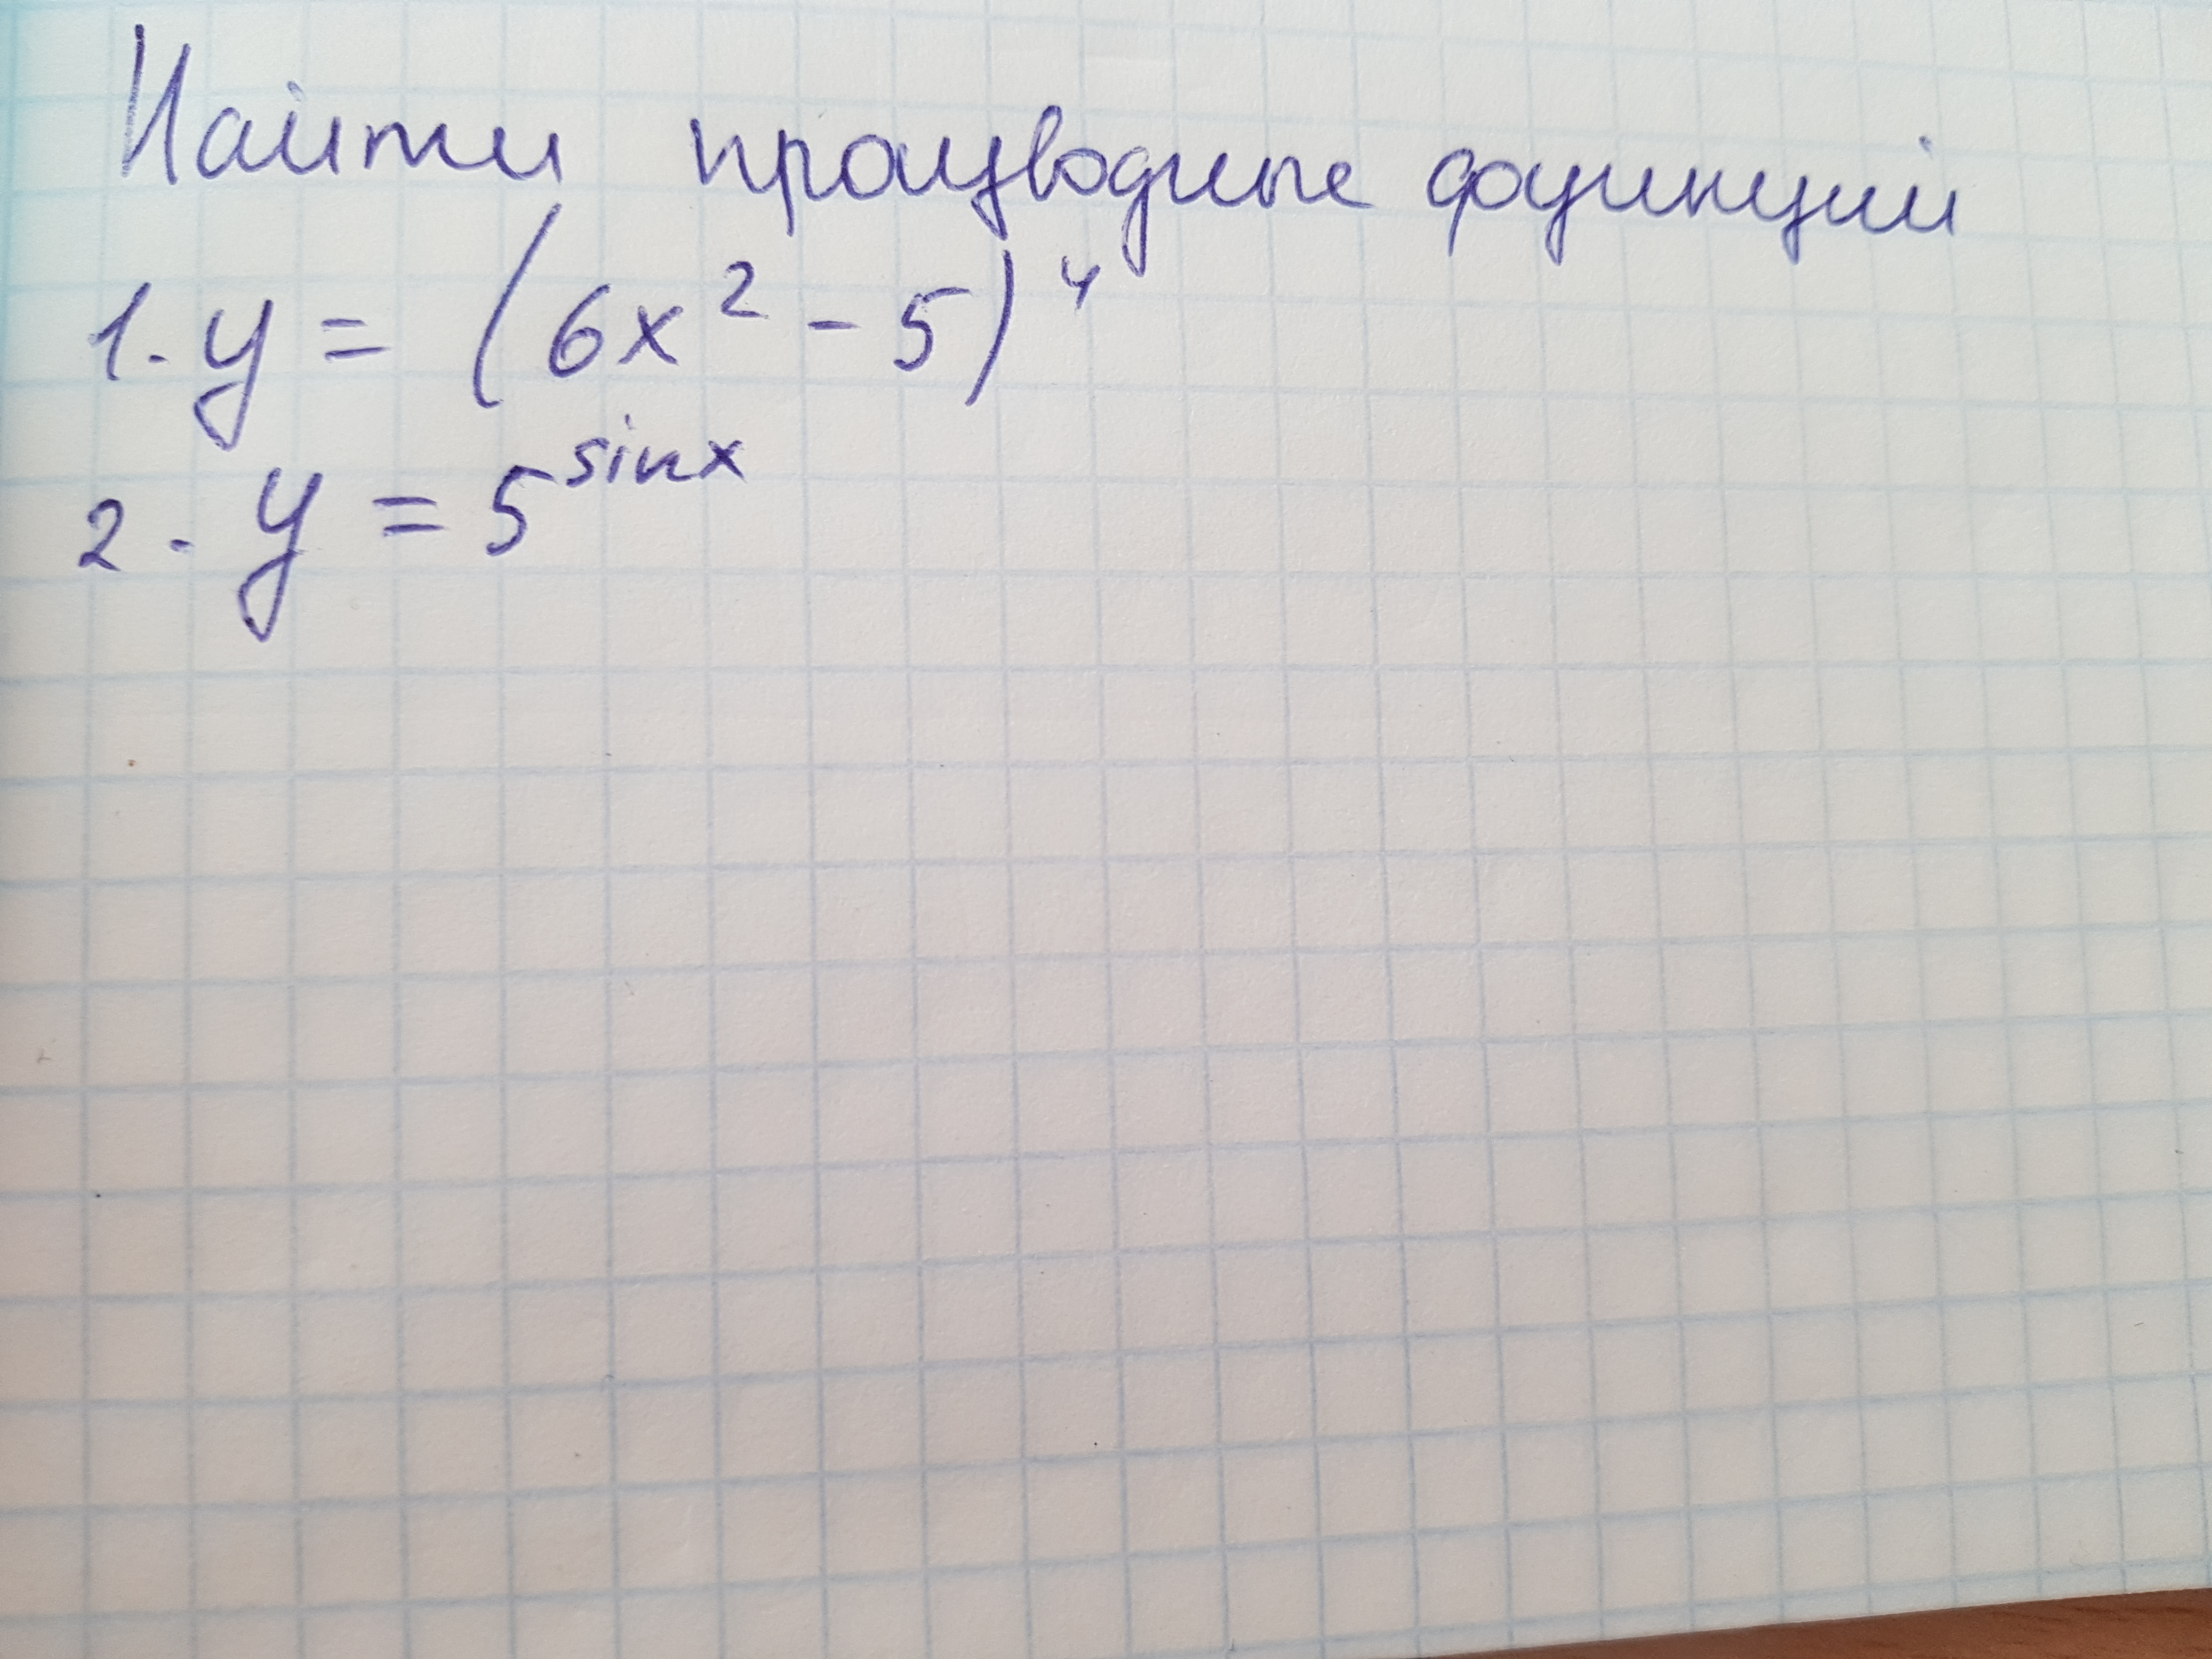 Найти производные функций
1. y = (6x² - 5)⁴
2. y = 5^sinx